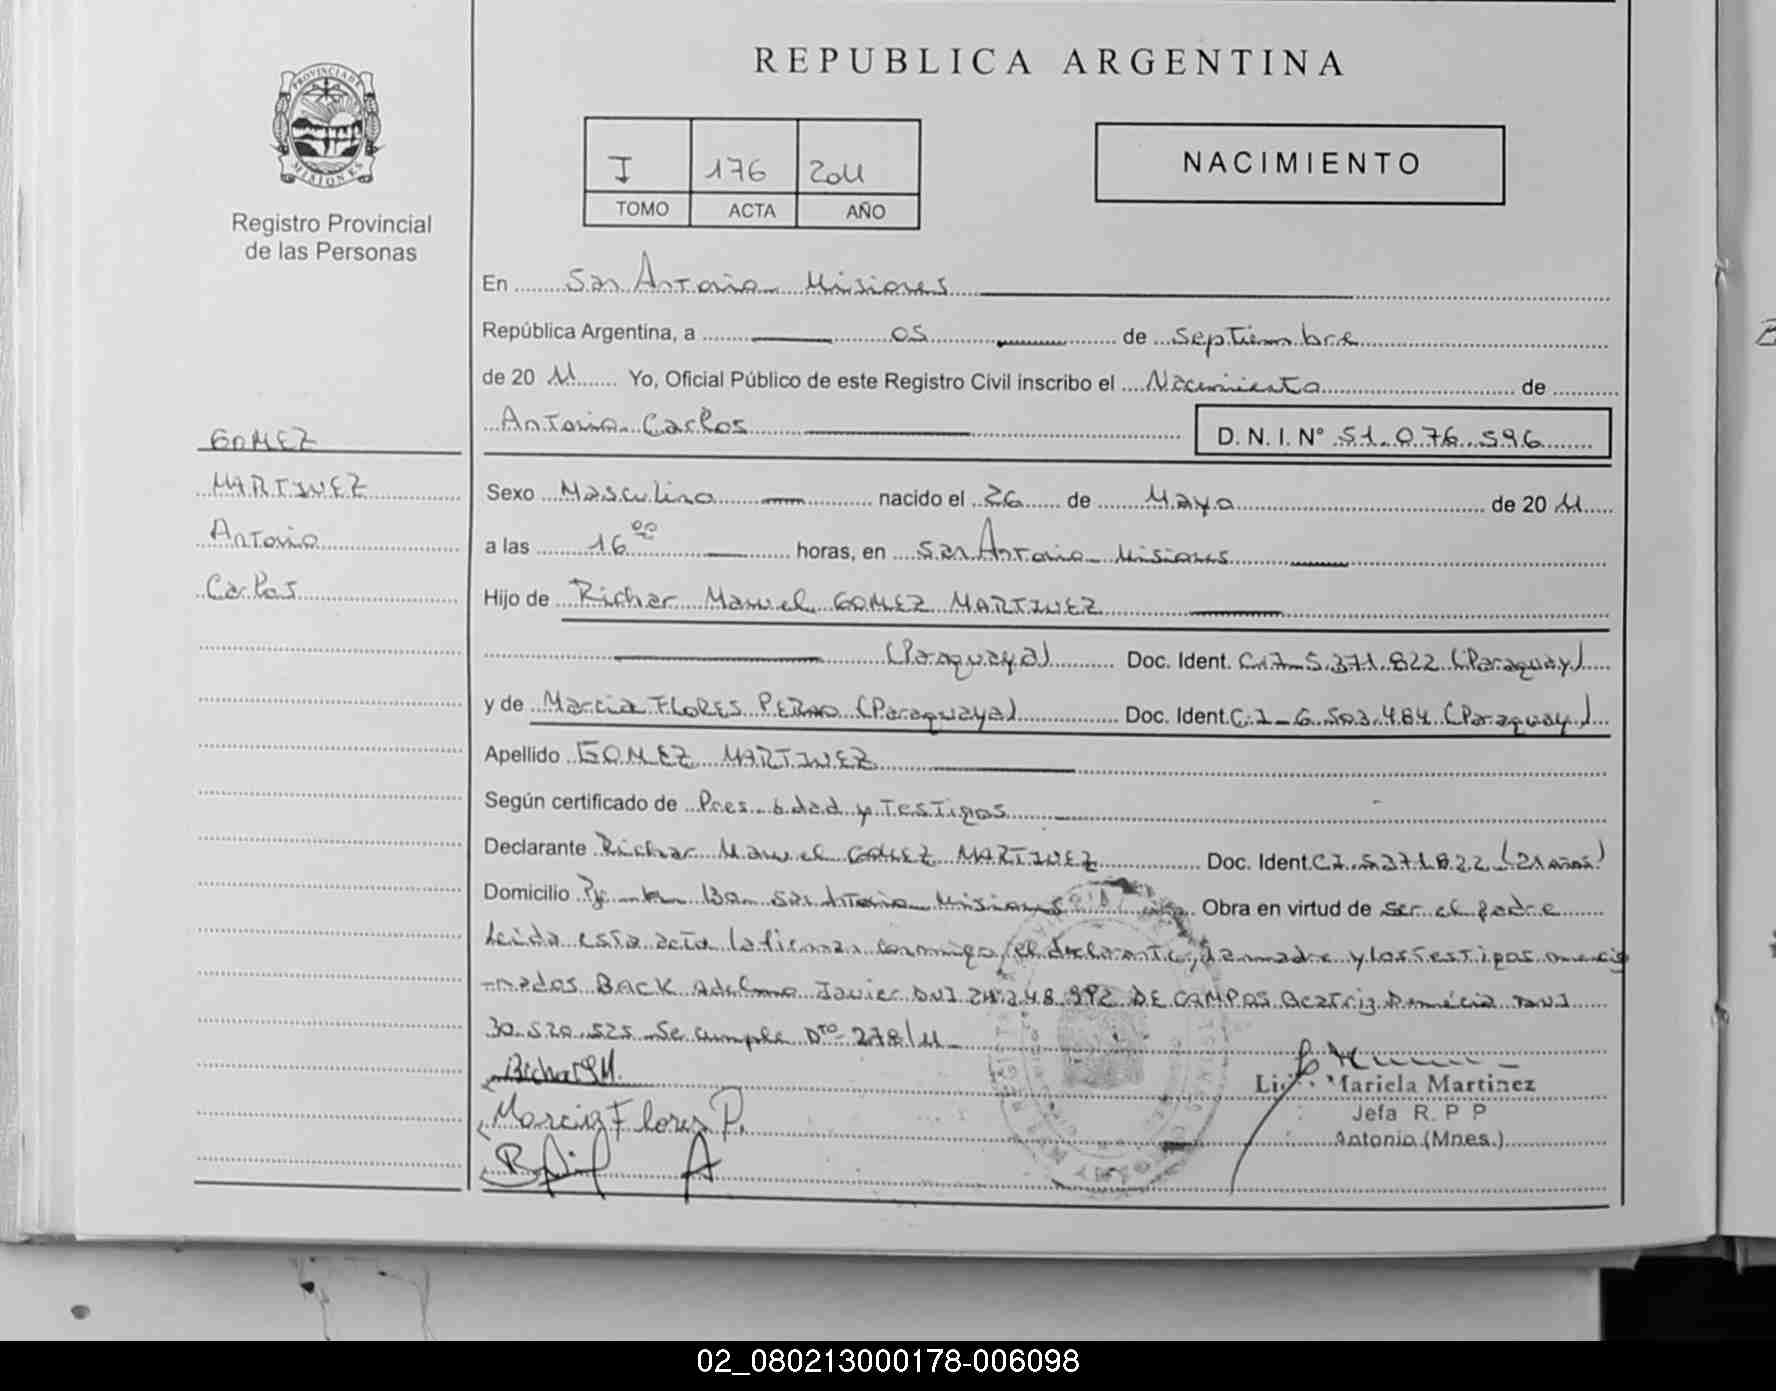 REPUBLICA ARGENTINA
PROVINCIA DE
MISIONES
Registro Provincial
de las Personas
I 176 2011
TOMO ACTA AÑO
NACIMIENTO
En San Antonio Misiones
República Argentina, a 05 de Septiembre
de 20 11 Yo, Oficial Público de este Registro Civil inscribo el Nacimiento de
Antonio Carlos D. N. I. N° 51.076.596
GOMEZ
MARTINEZ
Antonio
Carlos
Sexo Masculino nacido el 26 de Mayo de 20 11
a las 16 00 horas, en San Antonio Misiones
Hijo de Richar Manuel GOMEZ MARTINEZ
(Paraguaya) Doc. Ident. C.I. 5.371.822 (Paraguay)
y de Marcia FLORES PERAO (Paraguaya) Doc. Ident. C.I - 6.503.484 (Paraguay)
Apellido GOMEZ MARTINEZ
Según certificado de Pres. Edad y Testigos
Declarante Richar Manuel GOMEZ MARTINEZ Doc. Ident. C.I. 5.371.822 (21 años)
Domicilio San Antonio Misiones Obra en virtud de ser el padre
Leida esta acta la firman conmigo, el declarante, la madre y los testigos mencio
-nados BACK Adelmo Javier DNI 24.248.992 DE CAMPOS Beatriz DNI
30.520.525 Se cumple Dto 278/11
Richar G M.
Marcia Flores P.
Mariela Martinez
Jefa R. P P
Antonio (Mnes.)
02_080213000178-006098